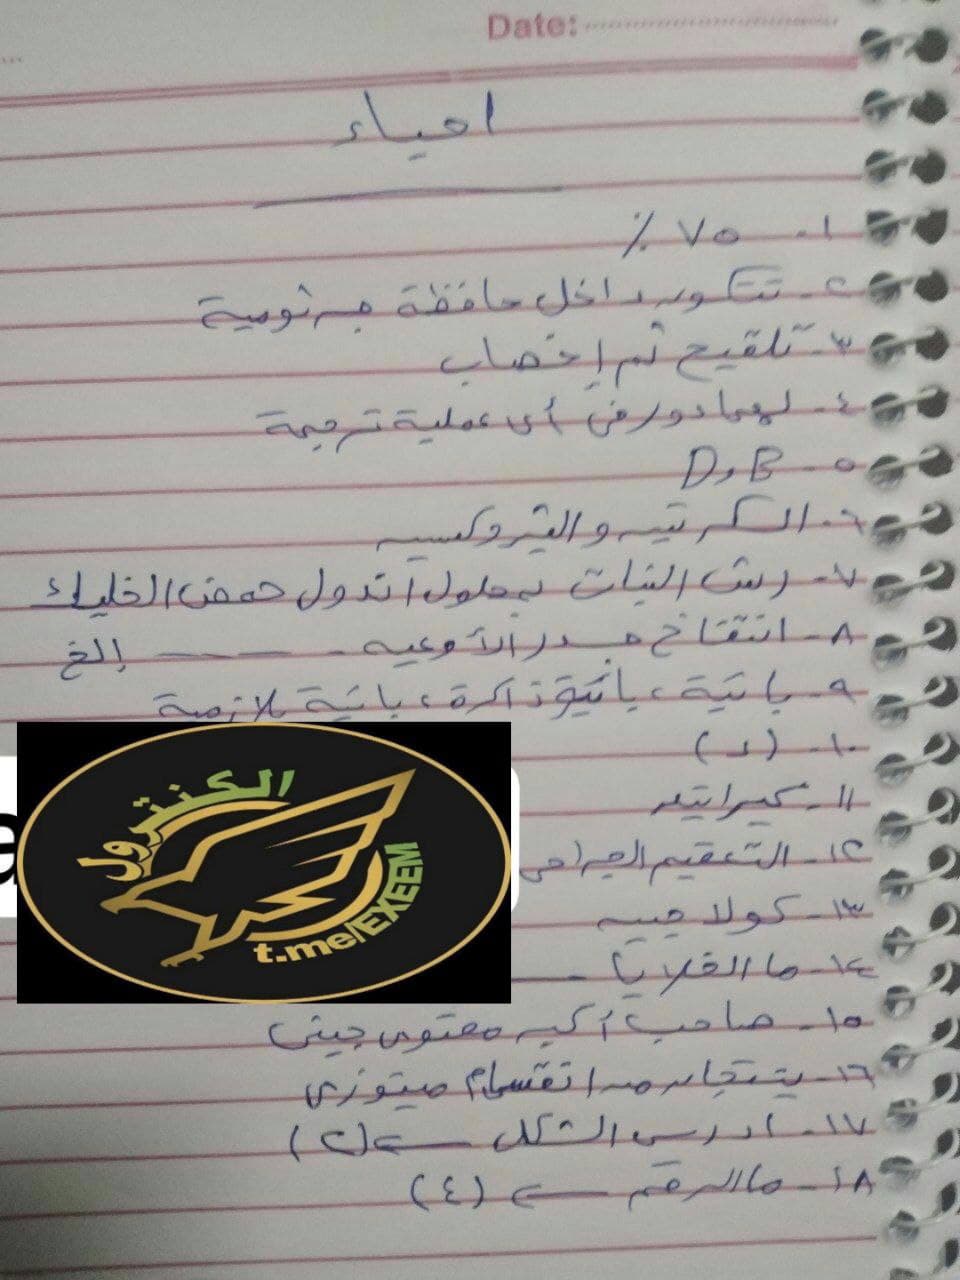 Date:
احياء
١- ٧٥ %
٢- تتكون داخل حافظة جرثومية
٣- تلقيح ثم إخصاب
٤- لهما دور في أي عملية ترجمة
٥- B و D
٦- الكرتين والثيروكسين
٧- رش النبات بمحلول اندول حمض الخليك
٨- انتفاخ جدر الأوعيه - — — — إلخ
٩- بائية ، بائية ذاكرة ، بائية بلازمية
١٠- (د)
١١- كيراتين
١٢- التعقيم الجراحى
١٣- كولاجين
١٤- ما الخلايا
١٥- صاحب أكبر محتوى جينى
١٦- ينتجان من انقسام ميتوزى
١٧- ادرس الشكل ← (٢)
١٨- ما الرقم ← (٤)
الكنترول
t.me/EXEEM
a